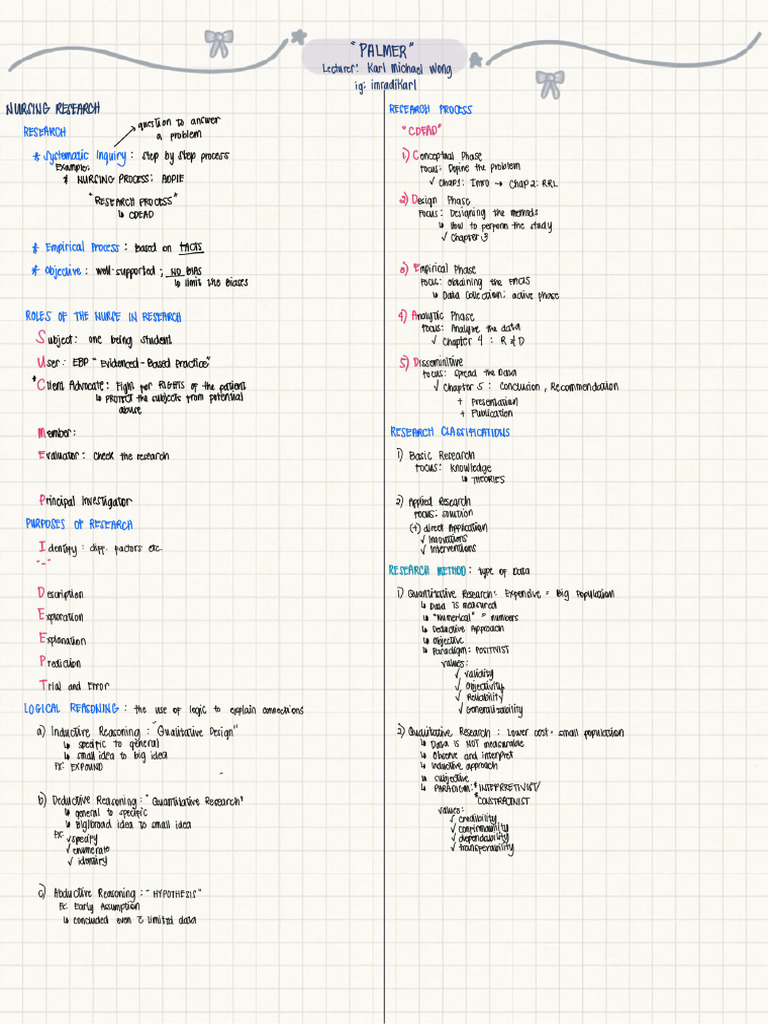 "PALMER"
Lecturer: Karl Michael Wong
ig: imradikarl
NURSING RESEARCH
RESEARCH
question to answer
a problem
* Systematic Inquiry: step by step process
Example:
* NURSING PROCESS: ADPIE
"RESEARCH PROCESS"
↳ CDEAD
* Empirical Process: Based on FACTS
* Objective: well-supported; NO BIAS
↳ limit the biases
ROLES OF THE NURSE IN RESEARCH
Subject: one being student
User: EBP "Evidenced-Based Practice"
*Client Advocate: Fight for RIGHTS of the patient
↳ PROTECT the subjects from potential
abuse
Member:
Evaluator: check the research
Principal Investigator
PURPOSES OF RESEARCH
Identify: diff. factors etc.
"-"
Description
Exploration
Explanation
Prediction
Trial and Error
LOGICAL REASONING: the use of logic to explain connections
a) Inductive Reasoning: "Qualitative Design"
↳ specific to general
↳ small idea to big idea
EX: EXPOUND
b) Deductive Reasoning: "Quantitative Research"
↳ general to specific
↳ big/broad idea to small idea
EX: ✓ specify
✓ enumerate
✓ identify
c) Abductive Reasoning: "HYPOTHESIS"
EX: Early Assumption
↳ concluded even c̄ limited data
RESEARCH PROCESS
"CDEAD"
1) Conceptual Phase
Focus: Define the problem
✓ Chap1: Intro → Chap 2: RRL
2) Design Phase
Focus: Designing the methods
↳ How to perform the study
✓ Chapter 3
3) Empirical Phase
Focus: obtaining the FACTS
↳ Data Collection: active phase
4) Analytic Phase
Focus: Analyze the data
✓ Chapter 4: R & D
5) Disseminitive
Focus: Spread the Data
✓ Chapter 5: Conclusion, Recommendation
+ Presentation
+ Publication
RESEARCH CLASSIFICATIONS
1) Basic Research
Focus: Knowledge
↳ THEORIES
2) Applied Research
Focus: Solution
(+) direct Application
✓ Innovations
✓ Interventions
RESEARCH METHOD: type of Data
1) Quantitative Research: Expensive = Big Population
↳ Data is measured
↳ "Numerical" = numbers
↳ Deductive Approach
↳ Objective
↳ Paradigm: POSITIVIST
values:
✓ validity
✓ Objectivity
✓ Reliability
✓ Generalizability
2) Qualitative Research: Lower cost = small population
↳ Data is NOT measurable
↳ Observe and interpret
↳ Inductive approach
↳ subjective
↳ PARADIGM: *INTERPRETIVIST/
*CONSTRACTINIST
values:
✓ credibility
✓ confirmability
✓ dependability
✓ transferability